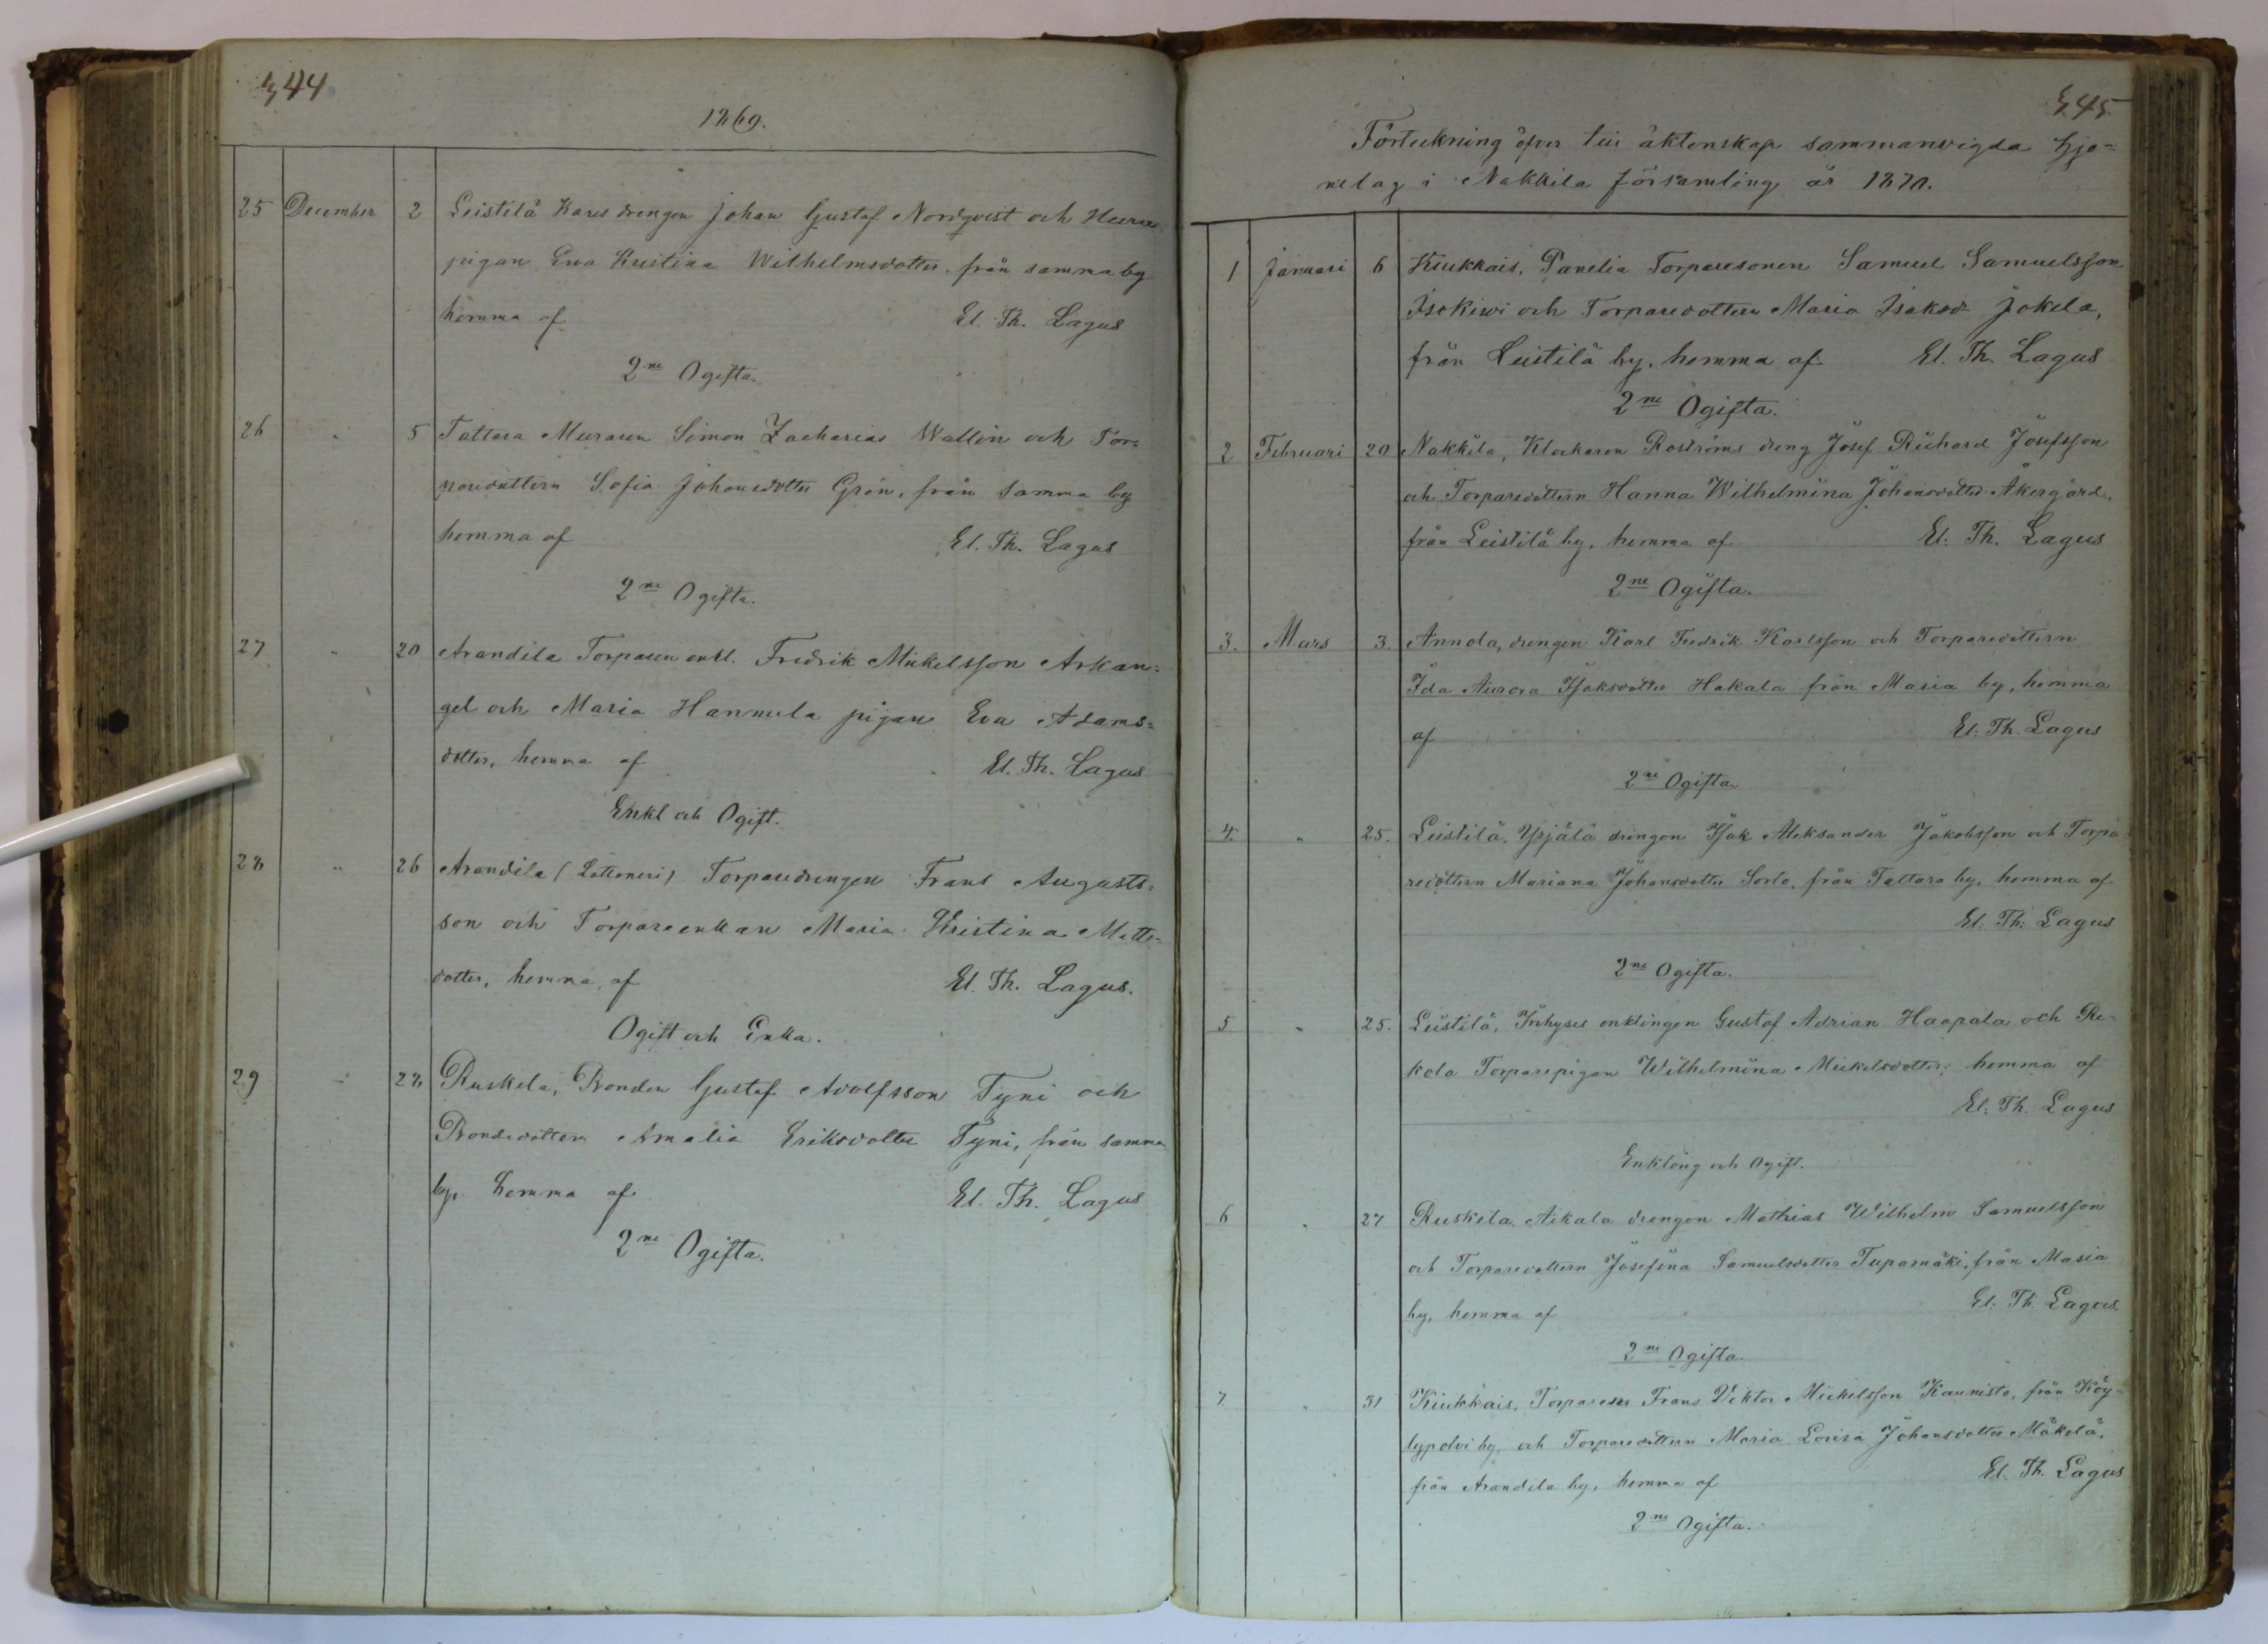 344
1869.
25 December 2 Leistilä Kares drengen Johan Gustaf Nordqvist och
pigan Eva Kristina Wilhelmsdotter, från samma by
hemma af El. Th. Lagus
2ne Ogifta.
26 " 5 Tattara Muraren Simon Zacharias Wallin och Tor=
paredottern Sofia Johansdotter Grön, från samma by
hemma af El. Th. Lagus
2ne Ogifta.
27 " 20 Arandila Torparen enkl. Fredrik Mickelsson Arkan=
gel och Maria Hannula pigan Eva Adams=
dotter, hemma af El. Th. Lagus
Enkl och Ogift.
28 " 26 Arandila (Lattomeri) Torparedrengen Frans Augusts=
son och Torpareenkan Maria Kristina Matts=
dotter, hemma af El. Th. Lagus.
Ogift och Enka.
29 " 28 Ruskela, Bonden Gustaf Adolfsson Tyni och
Bondedottern Amalia Eriksdotter Tyni, från samma
by, hemma af El. Th. Lagus
2ne Ogifta.
345
Förteckning öfver till äktenskap sammanvigda hjo=
nelag i Nakkila församling år 1870.
1 Januari 6 Kiukkais, Panelia Torparesonen Samuel Samuelsson
Isokiwi och Torparedottern Maria Isaksd. Jokela,
från Leistilä by, hemma af El. Th. Lagus
2ne Ogifta.
2 Februari 20 Nakkila, Klockaren Roströms dreng Josef Richard Josefsson
och Torparedottern Hanna Wilhelmina Johansdotter Åkergård,
från Leistilä by, hemma af El. Th. Lagus
2ne Ogifta.
3. Mars 3. Annola, drengen Karl Fredrik Karlsson och Torparedottern
Ida Aurora Isaksdotter Hakala från Masia by, hemma
af El. Th. Lagus
2ne Ogifta
4. " 25. Leistilä, Yrjälä drengen Isak Aleksander Jakobsson och Torpa
redottern Mariana Johansdotter Sorto, från Tattara by, hemma af
El. Th. Lagus
2ne Ogifta.
5 " 25. Leistilä, Inhyses enklingen Gustaf Adrian Haapala och Re=
kola Torparepigan Wilhelmina Mickelsdotter, hemma af
El. Th. Lagus
Enkling och Ogift.
6 " 27 Ruskila, Aikala drengen Mathias Wilhelm Samuelsson
och Torparedottern Josefina Samuelsdotter Tupamäki, från Masia
by, hemma af El. Th. Lagus.
2ne Ogifta.
7 " 31 Kiukkais, Torparesn Frans Viktor Mickelsson Kaunisto, från Köy=
lypolvi by, och Torparedottern Maria Lovisa Johansdotter Mäkelä,
från Arandila by, hemma af El. Th. Lagus
2ne Ogifta.